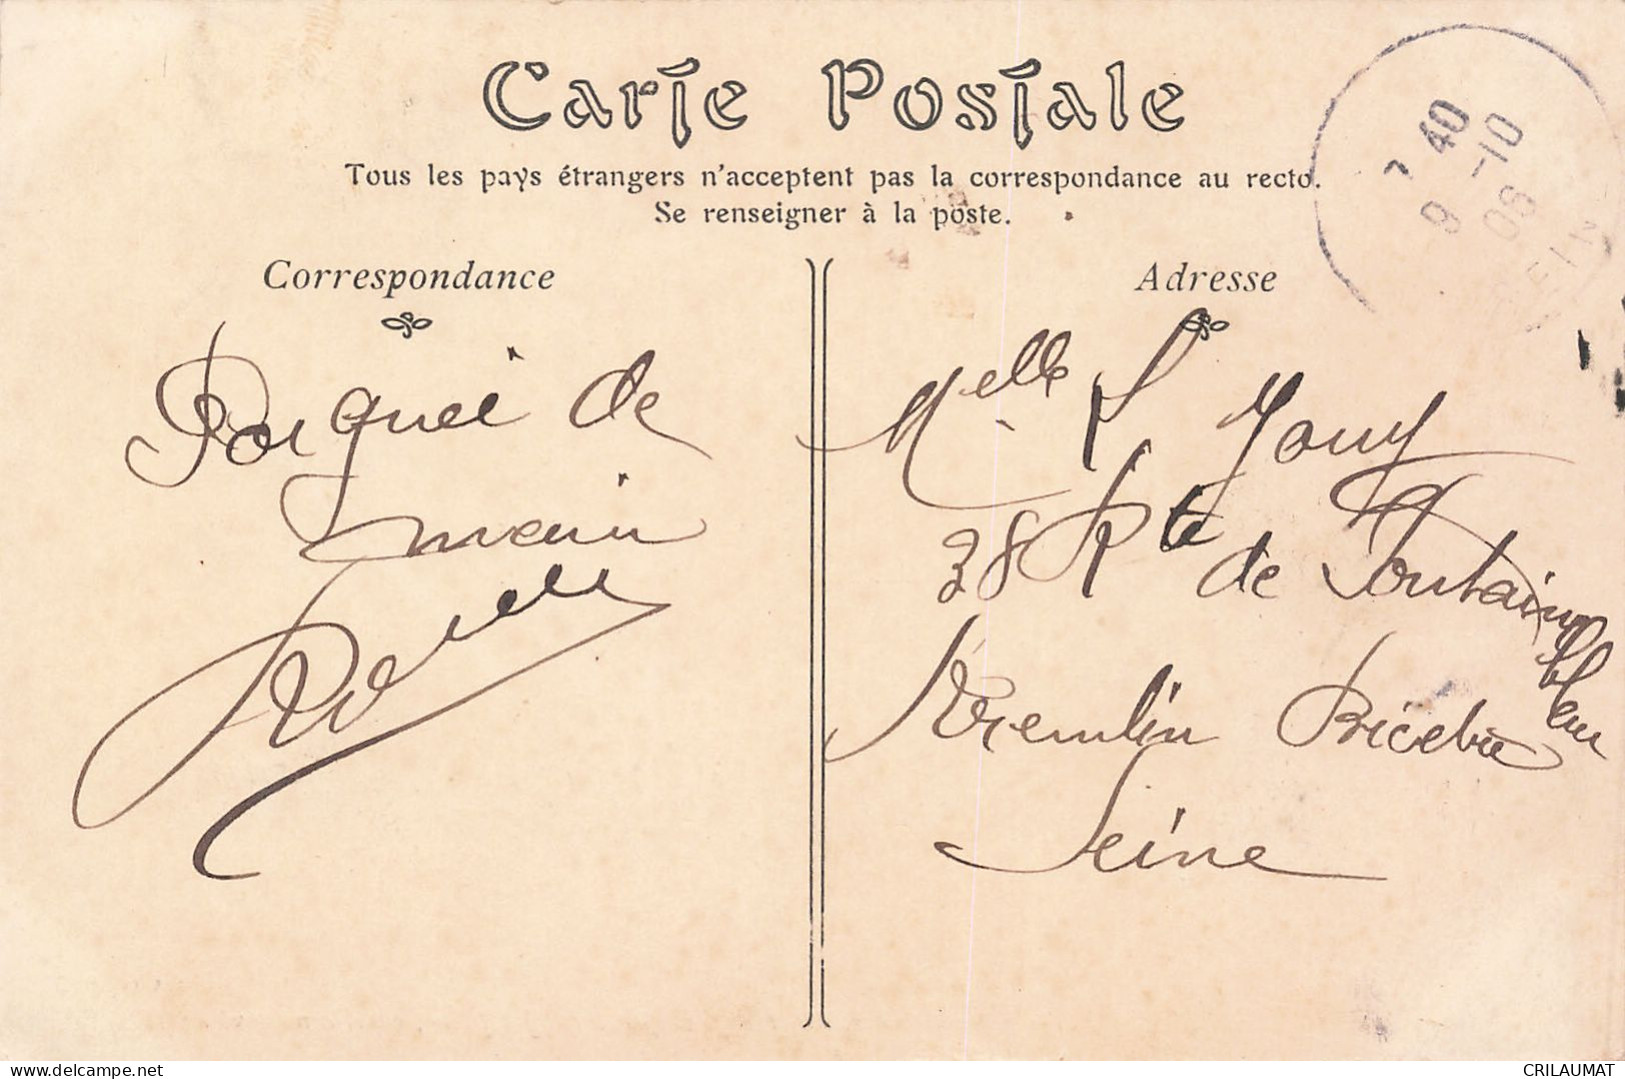 Carte Postale
Tous les pays étrangers n'acceptent pas la correspondance au recto.
Se renseigner à la poste.
Correspondance
Adresse
7 40
9 -10
08
SEINE
de
main
Melle Jouy
38 Rte de Fontainebleau
Kremlin Bicetre
Seine
www.delcampe.net
CRILAUMAT